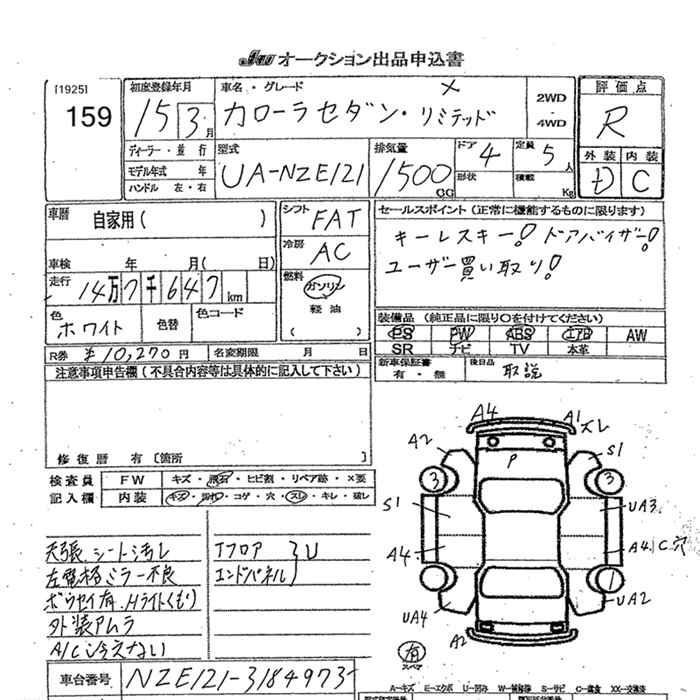 JAA オークション出品申込書
[1925]
159
初度登録年月
15 3月
車名・グレード
カローラセダン・リミテッド
2WD
4WD
評価点
R
外装 内装
D C
ディーラー・並行
モデル年式 年
ハンドル 左・右
型式
UA-NZE121
排気量
1500 CC
ドア 4
形状
定員 5人
積載 Kg
車歴 自家用( )
シフト FAT
冷房 AC
燃料 ガソリン
軽油
( )
セールスポイント(正常に機能するものに限ります)
キーレスキー! ドアバイザー!
ユーザー買い取り!
車検 年 月( 日)
走行 14万7千647km
色 ホワイト
色替
色コード
装備品(純正品に限り○を付けてください)
PS PW ABS エアB AW
SR ナビ TV 本革
R券 ¥10,270円
名変期限 月 日
新車保証書
有・無
後日品 取説
注意事項申告欄(不具合内容等は具体的に記入して下さい)
修復歴 有〔箇所 〕
検査員
記入欄
FW キズ・飛石・ヒビ割・リペア跡・×要
内装 キズ・汚れ・コゲ・穴・スレ・キレ・破レ
天張、シート汚れ
左電格ミラー不良
ボウセイ有、Hライトくもり
外装アムラ
A/C冷えない
Tフロア
エンドパネル
U
A4 A1 ズレ
A2 S1
P
3 3
S1 UA3
A4 A4 C穴
UA4 UA2
A2
有
スペア
車台番号 NZE121-3184973
A-キズ E-エクボ U-凹み W-補修跡 S-サビ C-腐食 XX-交換済